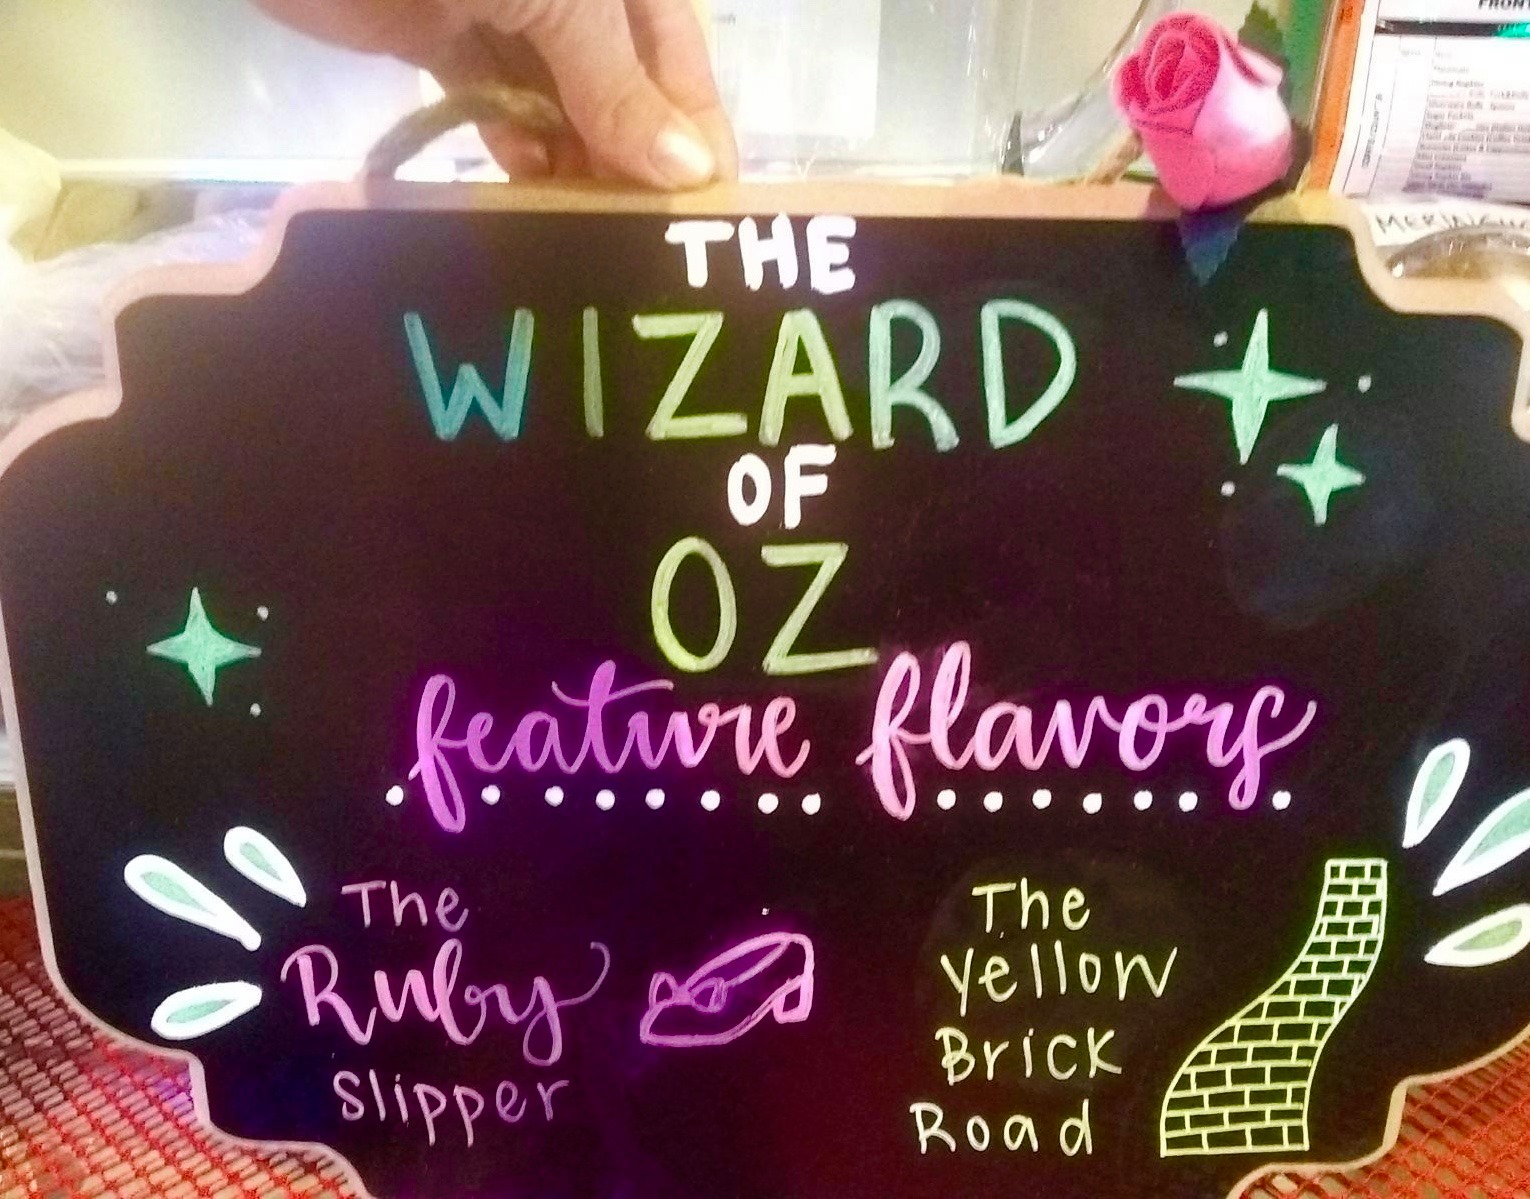 FRONT
MERINGU
THE
WIZARD
OF
OZ
feature flavors
The
Ruby
Slipper
The
Yellow
Brick
Road